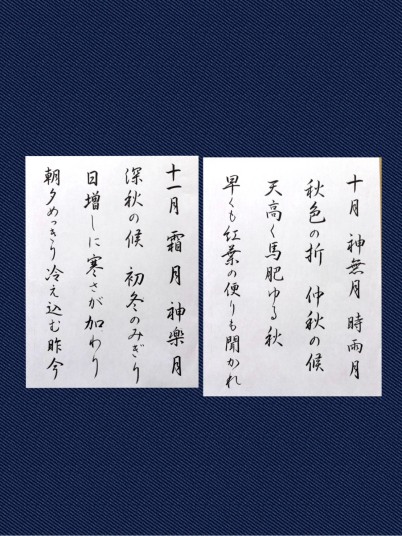 十月 神無月 時雨月
秋色の折 仲秋の候
天高く馬肥ゆる秋
早くも紅葉の便りも聞かれ
十一月 霜月 神楽月
深秋の候 初冬のみぎり
日増しに寒さが加わり
朝夕めっきり冷え込む昨今